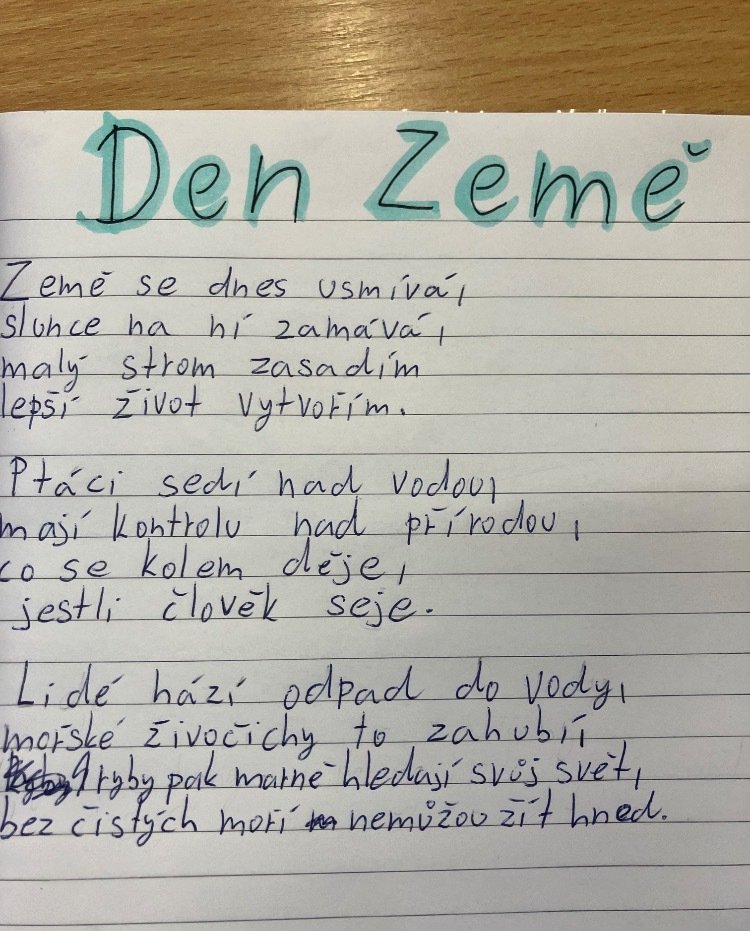 Den Země
Země se dnes usmívá,
slunce na ní zamává,
malý strom zasadím
lepší život vytvořím.
Ptáci sedí nad vodou,
mají kontrolu nad přírodou,
co se kolem děje,
jestli člověk seje.
Lidé hází odpad do vody,
mořské živočichy to zahubí,
ryby pak marně hledají svůj svět,
bez čistých moří nemůžou žít hned.